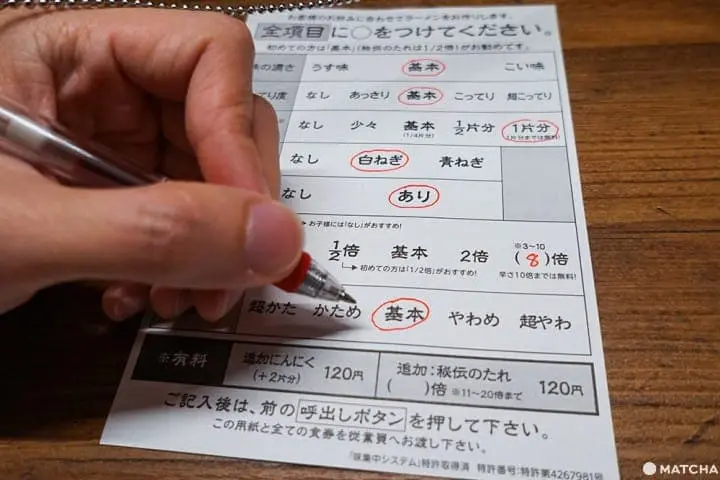 お客様のお好みに合わせてラーメンをお作りします。
全項目に○をつけてください。
初めての方は「基本」(秘伝のたれは1/2倍)がお勧めです。
味の濃さ うす味 基本 こい味
てり度 なし あっさり 基本 こってり 超こってり
なし 少々 基本 1/2片分 1片分
(1/4片分) 1片分までは無料!
なし 白ねぎ 青ねぎ
なし あり
お子様には「なし」がおすすめ!
※3~10
1/2倍 基本 2倍 (8)倍
初めての方は「1/2倍」がおすすめ! 辛さ10倍までは無料!
超かため かため 基本 やわめ 超やわ
※有料 追加にんにく (+2片分) 120円 追加:秘伝のたれ ( )倍 ※11~20倍まで 120円
ご記入後は、前の呼出しボタンを押して下さい。
この用紙と全ての食券を従業員へお渡し下さい。
「味集中システム」特許取得済 特許番号:特許第4267981号
MATCHA